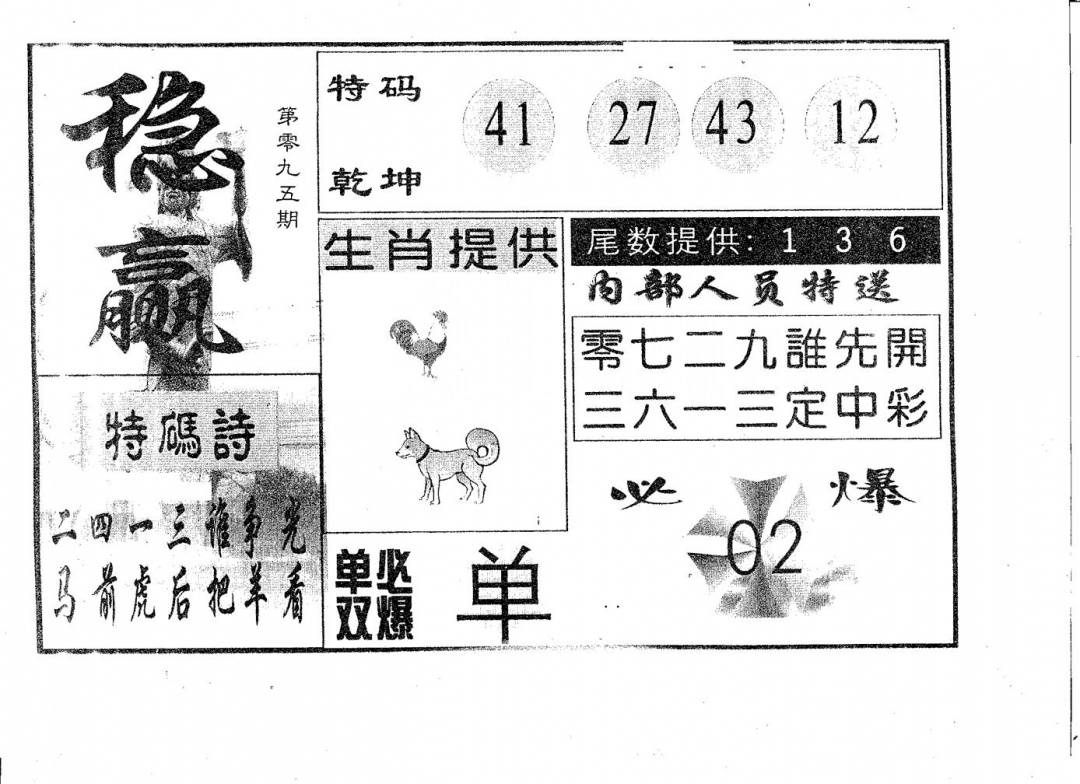 稳赢
第零九五期
特码
乾坤
41 27 43 12
生肖提供
尾数提供: 1 3 6
内部人员特送
零七二九誰先開
三六一三定中彩
特碼詩
二四一三谁争光
马前虎后把羊看
单双必爆
单
必爆
02